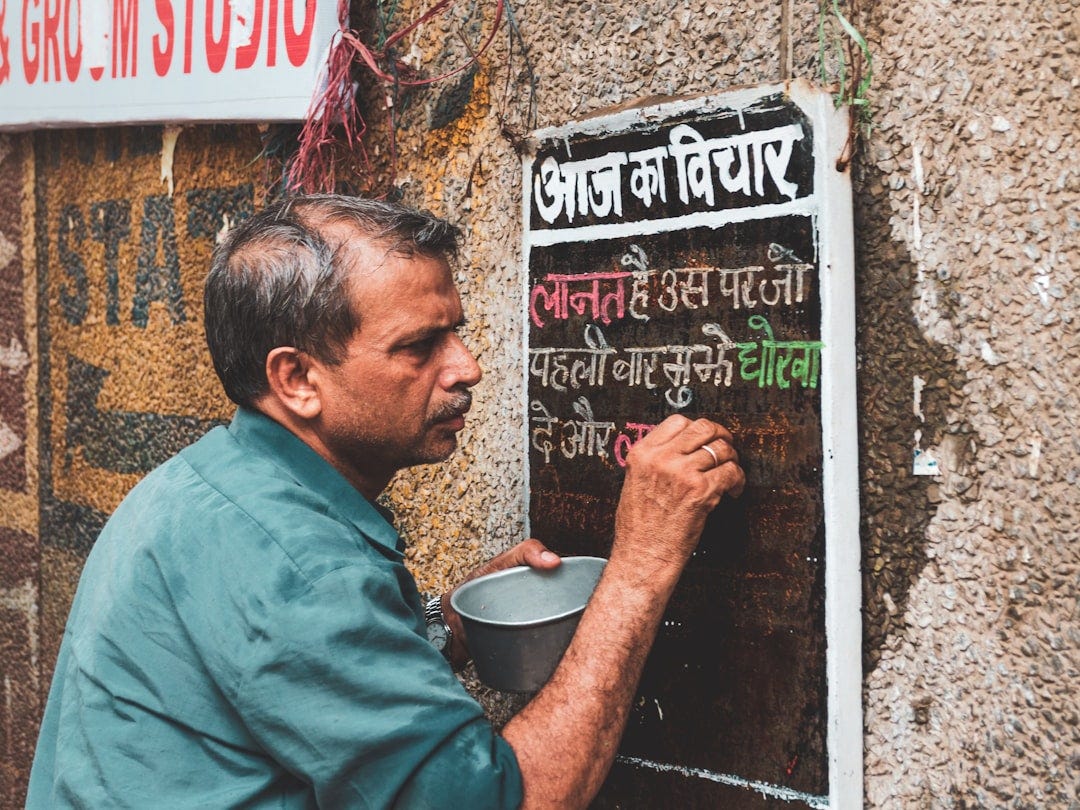 & GROOM STUDIO
STA
आज का विचार
लानत है उस पर जो
पहली बार मुझे धोखा
दे और ल